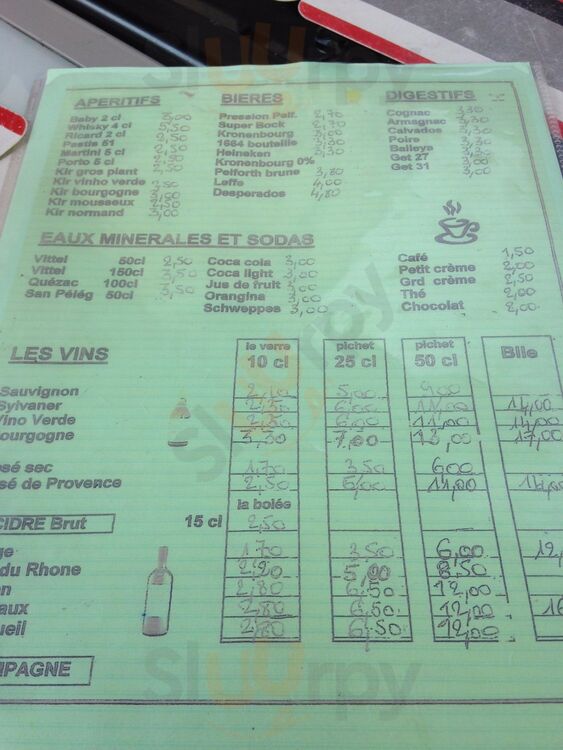 APERITIFS
Baby 2 cl
Whisky 4 cl
Ricard 2 cl
Pastis 51
Martini 5 cl
Porto 5 cl
Kir gros plant
Kir vinho verde
Kir bourgogne
Kir mousseux
Kir normand 3,00
BIERES
Pression Pelf. 2,70
Super Bock 2,70
Kronenbourg 3,00
1664 bouteille 3,30
Heineken 3,30
Kronenbourg 0%
Pelforth brune 3,80
Leffe 4,00
Desperados 4,80
DIGESTIFS
Cognac 3,30
Armagnac 3,30
Calvados 3,30
Poire
Baileys
Get 27 3,00
Get 31 3,00
EAUX MINERALES ET SODAS
Vittel 50cl 2,50
Vittel 150cl 3,50
Quézac 100cl 3,50
San Péleg 50cl 3,50
Coca cola 3,00
Coca light 3,00
Jus de fruit 3,00
Orangina 3,00
Schweppes 3,00
Café 1,50
Petit crème 2,00
Grd crème 2,50
Thé 2,00
Chocolat 2,00
LES VINS
le verre 10 cl
pichet 25 cl
pichet 50 cl
Blle
Sauvignon 5,00 9,00
Sylvaner 6,00 11,00 14,00
Vino Verde 6,00 11,00 14,00
ourgogne 3,50 7,00 13,00 17,00
osé sec 1,70 3,50 6,00
sé de Provence 2,50 6,00 11,00
la bolée
CIDRE Brut 15 cl 2,50
ge 1,70 3,50 6,00 12,
du Rhone 2,20 5,00 8,50
on 2,80 6,50 12,00
aux 2,80 6,50 12,00 16
ueil 2,80 6,50 12,00
MPAGNE
Sluurpy
Sluurpy
Sluurpy